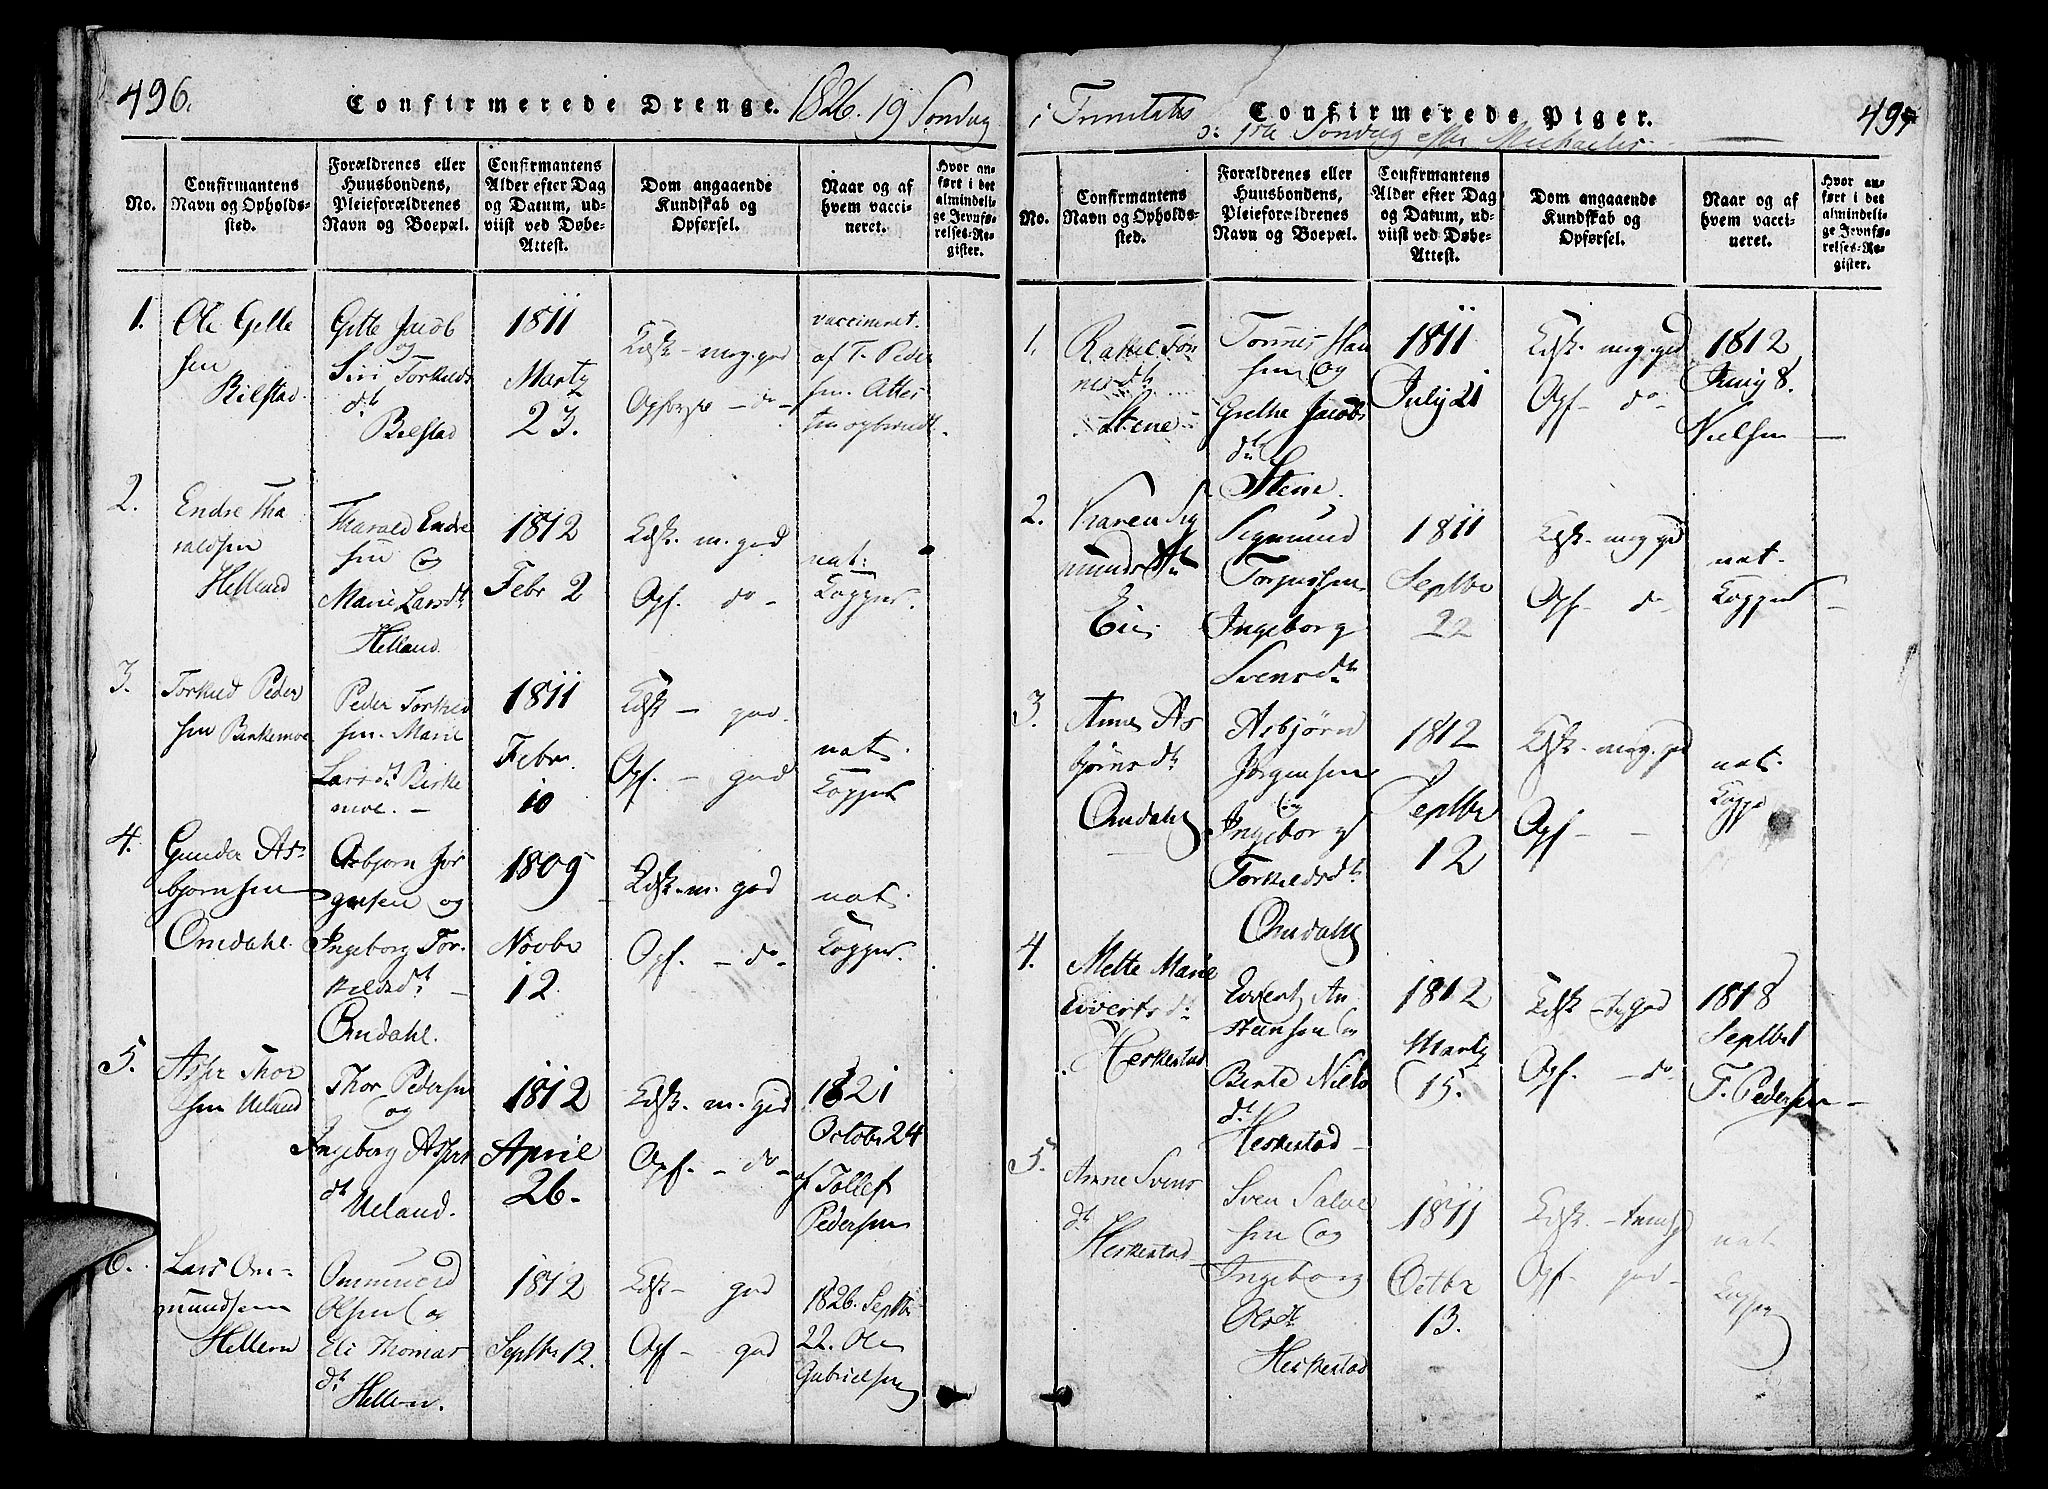 496.
Confirmerede Drenge. 1826. 19 Søndag
No.
Confirmantens Navn og Opholdssted.
Forældrenes eller Huusbondens, Pleieforældrenes Navn og Boepæl.
Confirmantens Alder efter Dag og Datum, udviist ved Døbe-Attest.
Dom angaaende Kundskab og Opførsel.
Naar og af hvem vaccineret.
Hvor anført i det almindelige Jevnførelses-Register.
1.
Ole Gitle
sen
Bilstad
Gitle Jacob
og
Siri Torkelds
dt
Bilstad
1811
Marty
23.
Kdsk - meg. god
Opførsel - do -
vaccineret
af T. Peder
sen. Attes
ten
2.
Endre Tha
raldsen
Helland
Tharald Endre
sen og
Marie Larsdt
Helland
1812
Febr 2
Kdsk. m. god
Opf. do -
nat:
Kopper.
3.
Torkild Peder
sen Birkemoe
Peder Torkild
sen. Marie
Larsdt Birke
moe. -
1811
Febr.
10
Kdsk - god.
Opf. - god
nat.
Kopper
4.
Gunder As
bjørnsen
Omdahl.
Asbjørn Jør
gensen og
Ingeborg Tor
kildsdt -
Omdahl.
1809
Novbr
12
Kdsk. m. god
Opf. - do -
nat.
Kopper.
5.
Asser Thor
sen Ueland
Thor Pedersen
og
Ingeborg Assers
dt Ueland.
1812
April
26 -
Kdsk. m. god
Opf. - do -
1821
Octobr 24
af Tollef
Pedersen
6.
Lars Om-
mundsen
Hellern
Ommund
Olsen og
Eli Thomas
dt Hellern.
1812
Septbr 12.
Kdsk - god
Opf - god
1826. Septbr
22. Ole
Gabrielsen
i Trinitatis
Confirmerede Piger.
497
o: 1ste Søndag efter Michaelis
No.
Confirmantens Navn og Opholdssted.
Forældrenes eller Huusbondens, Pleieforældrenes Navn og Boepæl.
Confirmantens Alder efter Dag og Datum, udviist ved Døbe-Attest.
Dom angaaende Kundskab og Opførsel.
Naar og af hvem vaccineret.
Hvor anført i det almindelige Jevnførelses-Register.
1.
Rakel Tøn
nesdt
Stene
Tønnes Han
sen og
Grethe Jacobs
dt
Stene.
1811
July 21
Kdsk. meg. god
Opf - do
1812
Juny 8.
Nielsen -
2.
Karen Sig
mundsdt
Eie
Sigmund
Torjussen
Ingeborg
Svensdt
1811
Septbr
22
Kdsk. meg god
Opf - do
nat.
Kopper -
3.
Anne As
bjørnsdt
Omdahl
Asbjørn
Jørgensen
og
Ingeborg
Torkildsdt
Omdahl
1812
Septbr
12
Kdsk - meg. god
Opf - -
nat.
Kopp
4.
Mette Marie
Eivertsdt
Herkestad
Eivert
og
Berte Niels
dt
Herkestad -
1812
Marty
15.
Kdsk - god
Opf. - do
1818
Septbr 1
T. Pedersen -
5.
Anne Svens
dt
Herkestad
Sven Salve
sen og
Ingeborg
Olsdt
Herkestad
1811
Octbr
13.
Kdsk -
Opf - god -
nat
Kopper